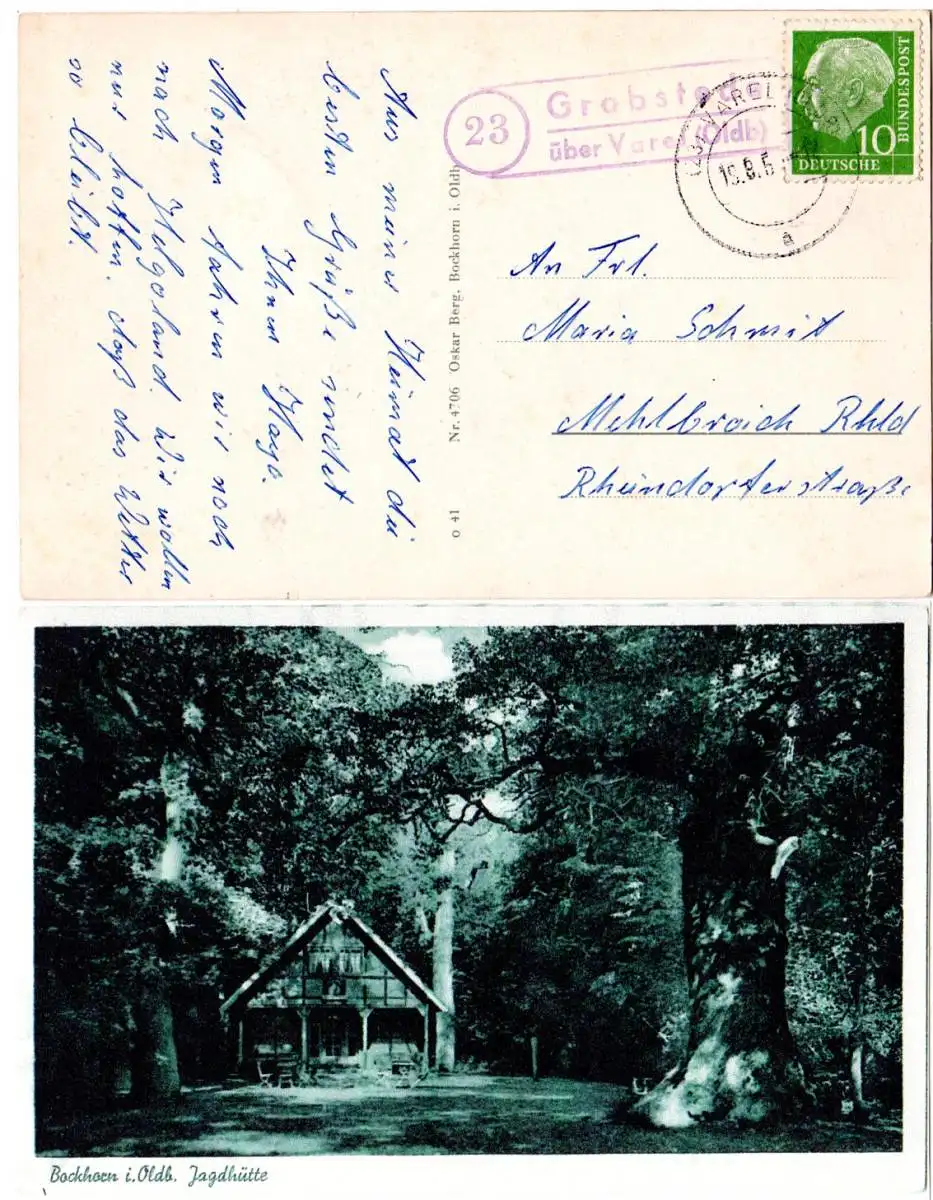 Aus meiner Heimat die
besten Grüße sendet
Ihnen Hayo.
Morgen fahren wir noch
nach Helgoland. Wir wollen
nur hoffen, daß das Wetter
so bleibt.
Nr. 4706 Oskar Berg, Bockhorn i. Oldb
o 41
23
Grabstede
über Varel (Oldb)
VAREL
19.8.5
a
DEUTSCHE
BUNDESPOST
10
An Frl.
Maria Schmit
Mehlbroich Rhld
Rheindorferstraße
Bockhorn i. Oldb. Jagdhütte